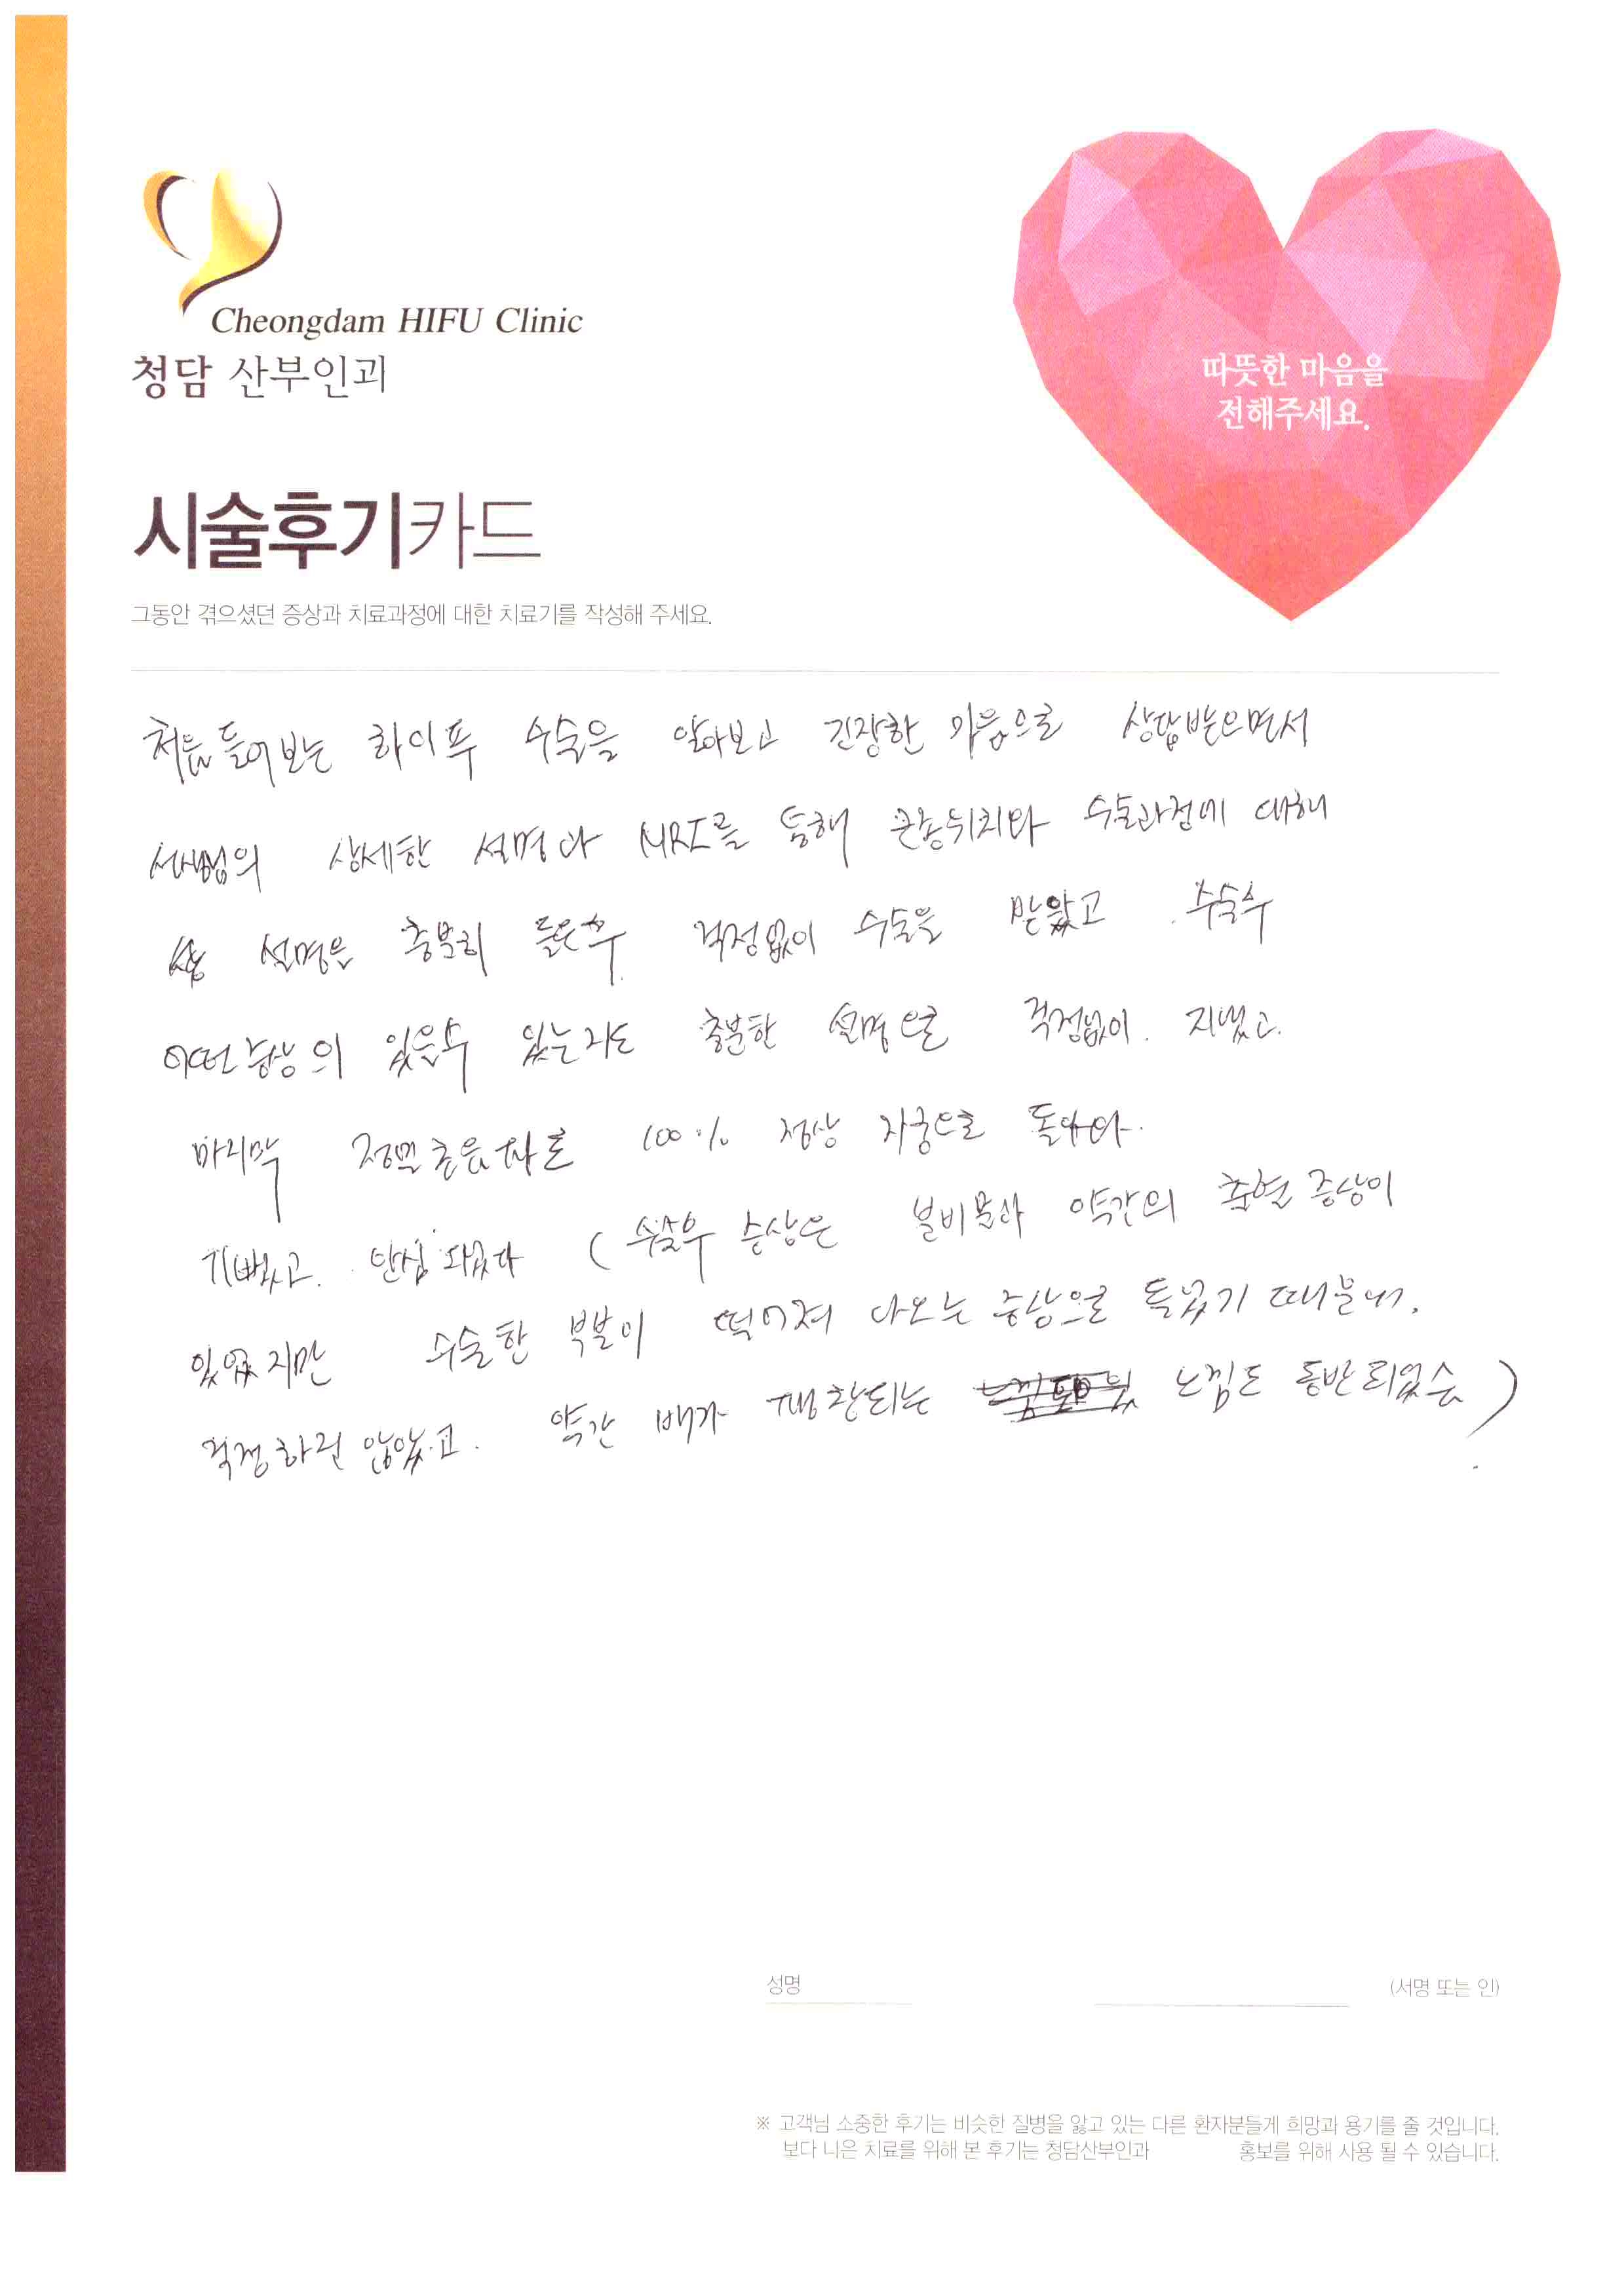 Cheongdam HIFU Clinic
청담 산부인과
따뜻한 마음을
전해주세요.
시술후기카드
그동안 겪으셨던 증상과 치료과정에 대한 치료기를 작성해 주세요.
처음 들어보는 하이푸 수술을 알아보고 긴장한 마음으로 상담받으면서
선생님의 상세한 설명과 MRI를 통해 근종위치와 수술과정에 대해
설명을 충분히 들은후 걱정없이 수술을 받았고 수술후
어떤 증상이 있을수 있는지도 충분한 설명으로 걱정없이 지냈고.
마지막 정밀초음파로 100% 정상 자궁으로 돌아와
기뻤고. 안심되었다 (수술후 증상은 분비물과 약간의 출혈 증상이
있었지만 수술한 부분이 떨어져 나오는 증상으로 들었기 때문에.
걱정하진 않았고. 약간 배가 팽창되는 느낌도 동반되었음)
성명 (서명 또는 인)
※ 고객님 소중한 후기는 비슷한 질병을 앓고 있는 다른 환자분들게 희망과 용기를 줄 것입니다.
보다 나은 치료를 위해 본 후기는 청담산부인과 홍보를 위해 사용 될 수 있습니다.